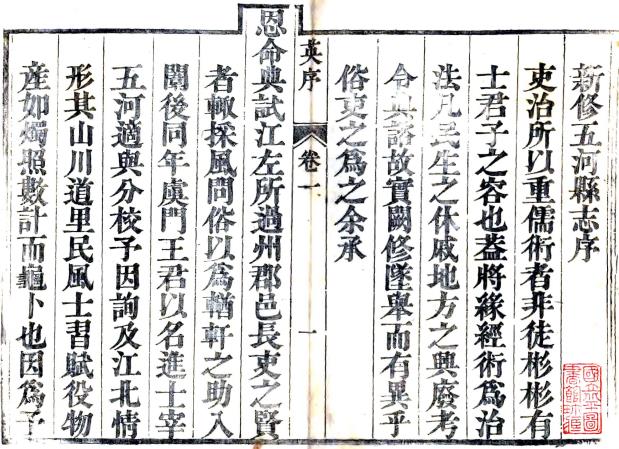 新修五河縣志序
吏治所以重儒術者非徒彬彬有
士君子之容也蓋將緣經術爲治
法凡民生之休戚地方之興廢考
令典諮故實闕修墜舉而有異乎
俗吏之爲之余承
英序
卷一
一
恩命典試江左所過州郡邑長吏之賢
者輙採風問俗以爲輶軒之助入
闈後同年虞門王君以名進士宰
五河適與分校予因詢及江北情
形其山川道里民風士習賦役物
産如燭照數計而龜卜也因爲予